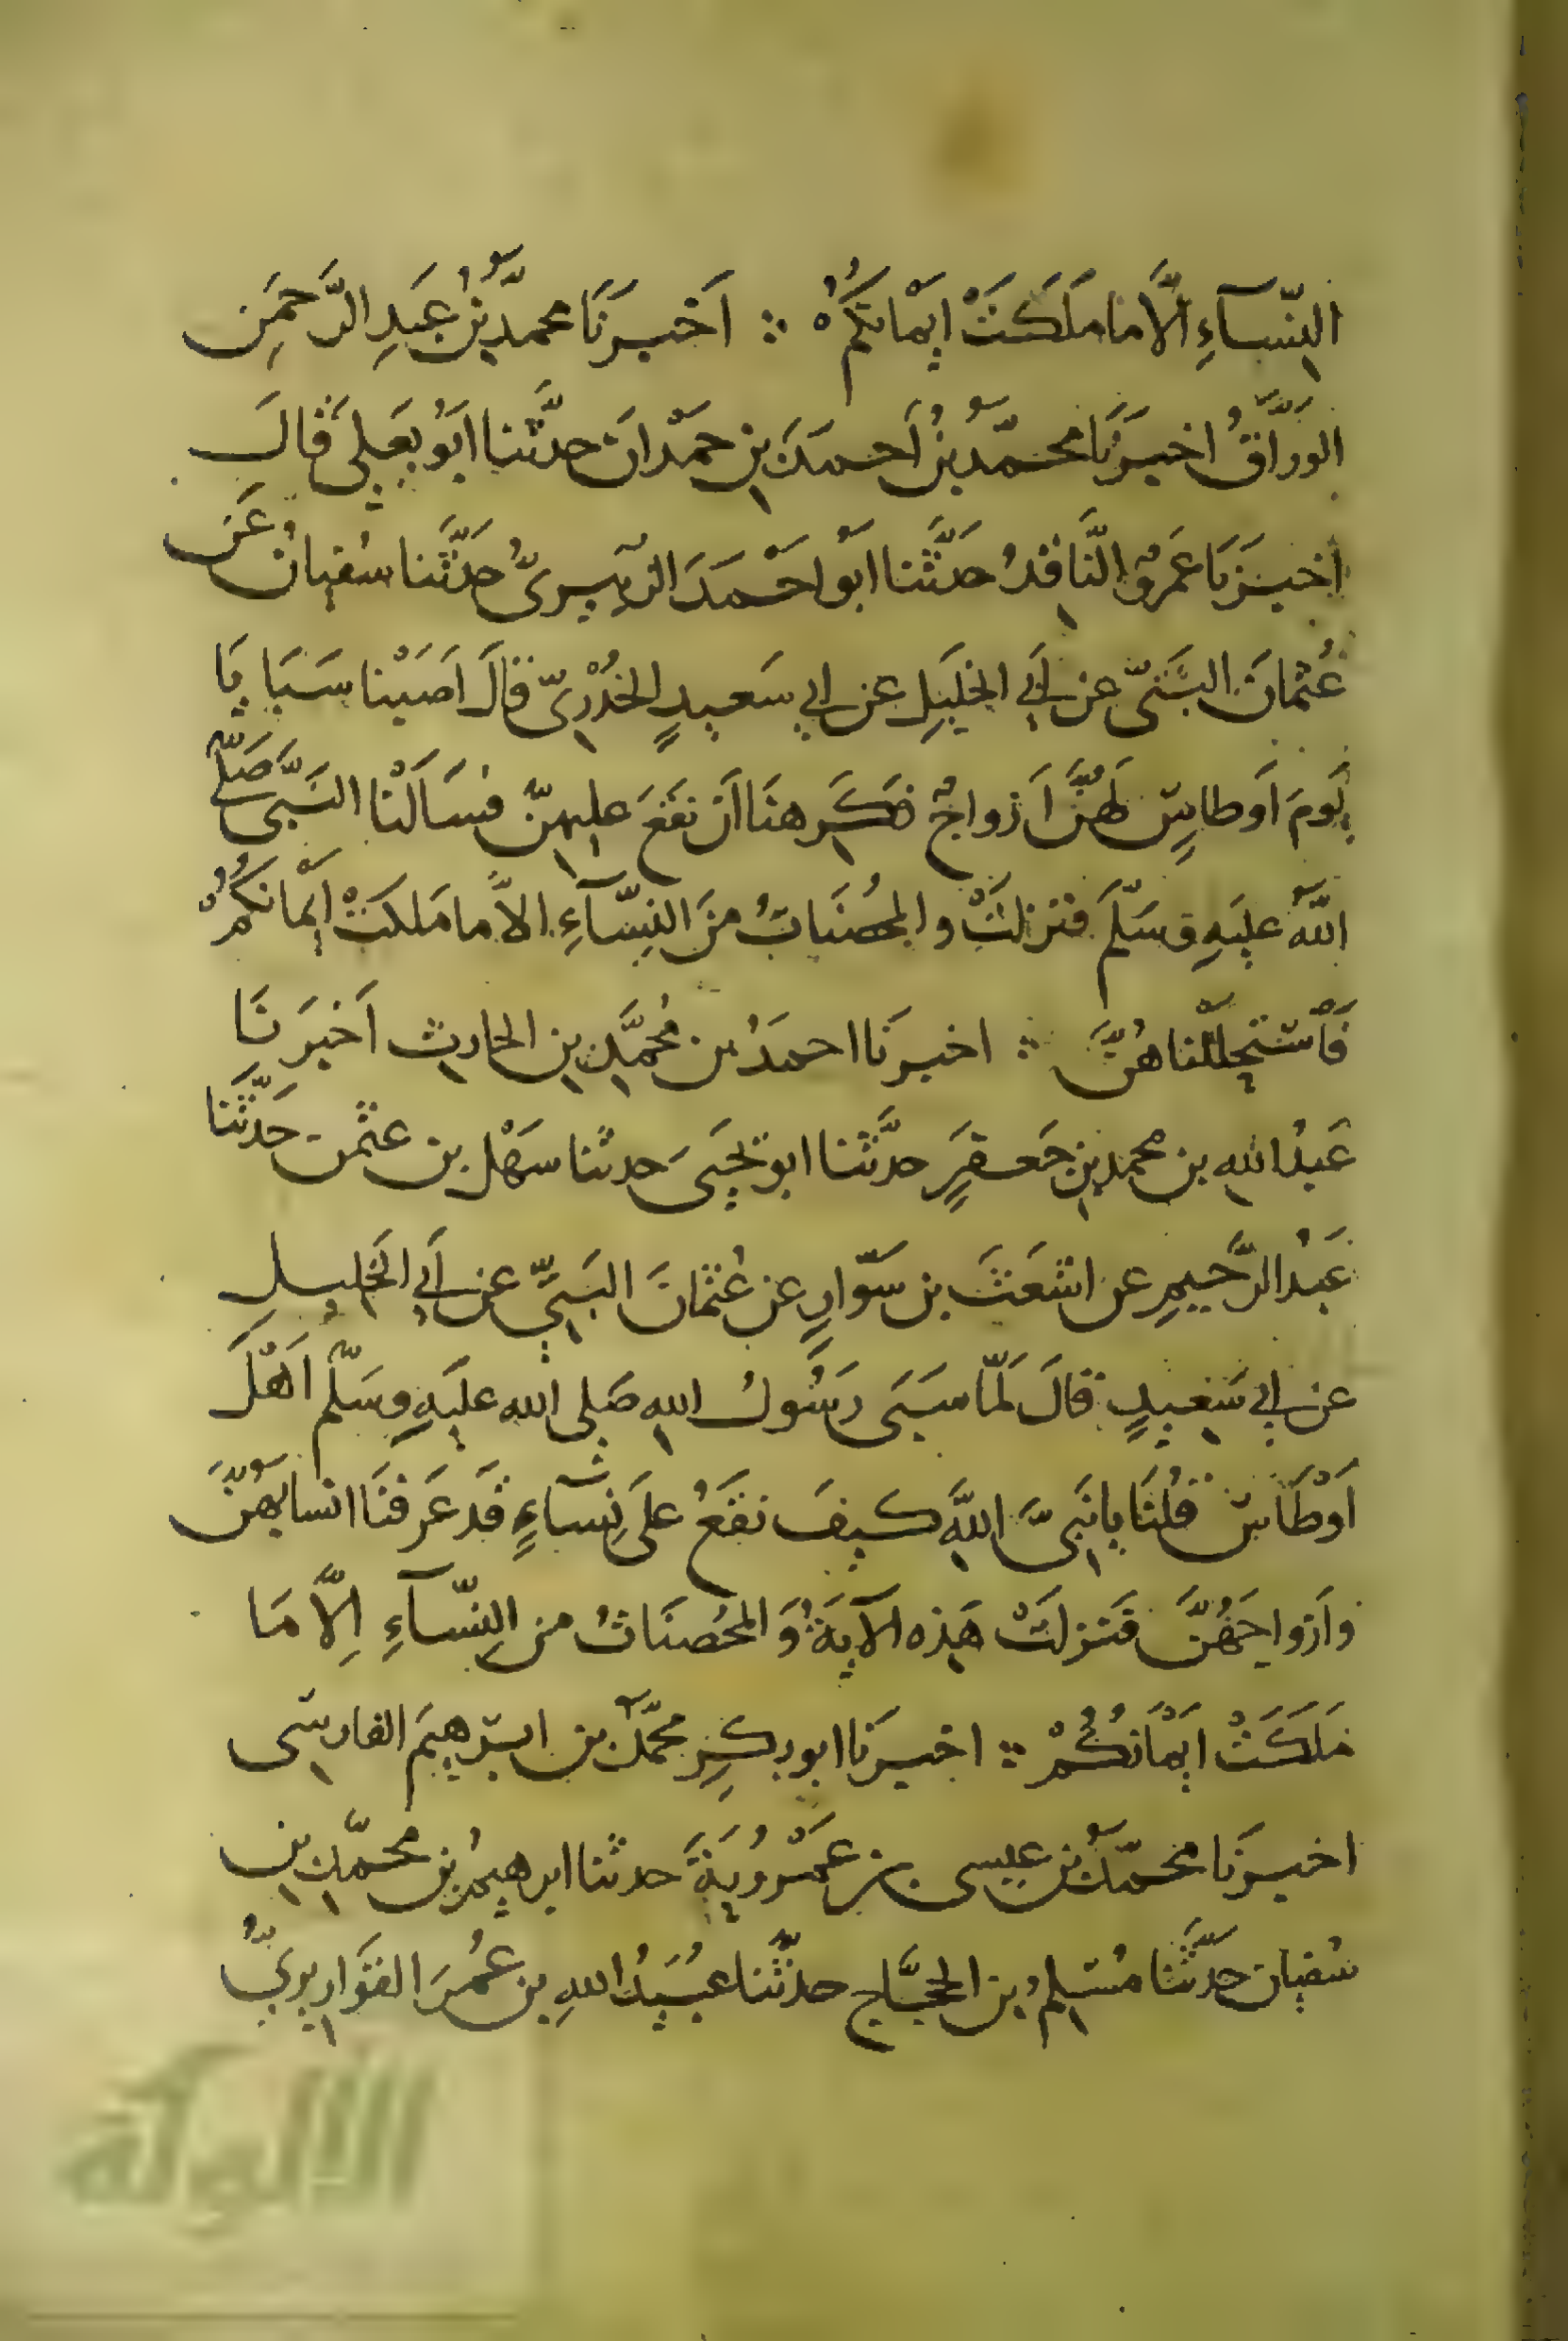 النِّسَآءِ الَّا ما مَلَكَتْ اَيْمَانُكُمْ ∴ اَخْبَرَنَا محمدُ بْنُ عَبدِ الرَّحمَنِ
الورّاقُ اخبرَنَا محمّدُ بنُ اَحمدَ بنِ حَمْدَانَ حدَّثنا ابَو يَعلى قالَ
اخبرَنا عَمروٌ النَّاقدُ حَدَّثَنا ابو احْمَدَ الزبيرىُّ حدَّثَنا سُفيانُ عَن
عُثمانَ البَتّيّ عن ابي الخليلِ عن ابي سَعيدٍ الخُدْرِيّ قالَ اَصَبْنا سَبَايَا
يَومَ اَوطاسٍ لَهُنَّ اَزواجٌ فكَرِهنَا اَن نقَعَ عليهنّ فسَاَلْنا النَبيَّ صَلّى
اللهُ عليَهِ وسَلّمَ فنزلَتْ والمحصَنَاتُ مِنَ النِّسَآءِ الاَّ ما مَلكَتْ اَيْمانُكُمْ
فَاسْتَحلَلْنَاهُنَّ ∴ اخبرَنا احمَدُ بن مُحمَّدِ بنِ الحارثِ اَخبَرَنَا
عَبدُ اللهِ بن محمدِ بنِ جَعفرٍ حدَّثَنا ابو يَحيَى حدثنا سَهْل بن عثمن حَدَّثَنا
عَبْدُ الرَّحيمِ عن اشعَثَ بن سَوّارٍ عن عُثمانَ البَتيّ عن اَبي الخَليلِ
عن ابي سَعيدٍ قالَ لَمّا سَبَى رَسُولُ اللهِ صَلى الله علَيهِ وسَلّم اَهْلَ
اَوْطَاسٍ قُلنَا يا نَبيَّ اللهِ كيفَ نقَعُ على نِسَآءٍ قَد عَرَفنَا انسابَهُنَّ
وَاَزواجَهُنَّ فَنزلَتْ هَذه الآيَةُ وَالمحُصنَاتُ من النِّسَآءِ اِلّا مَا
مَلَكَتْ اَيْمَانُكُمْ ∴ اخبرَنا ابو بكرٍ محمّدُ بن ابرهيمَ الفارسي
اخبرَنا محمّدُ بن عيسى بن عَمْرُويَةَ حدثنا ابرهيمُ بن محمّدِ بنِ
سُفيان حدَّثَنا مُسْلمُ بن الحجّاج حدثَّنا عبُيَدُ اللهِ بن عُمَرَ القوَاريرىُّ
الألوكة